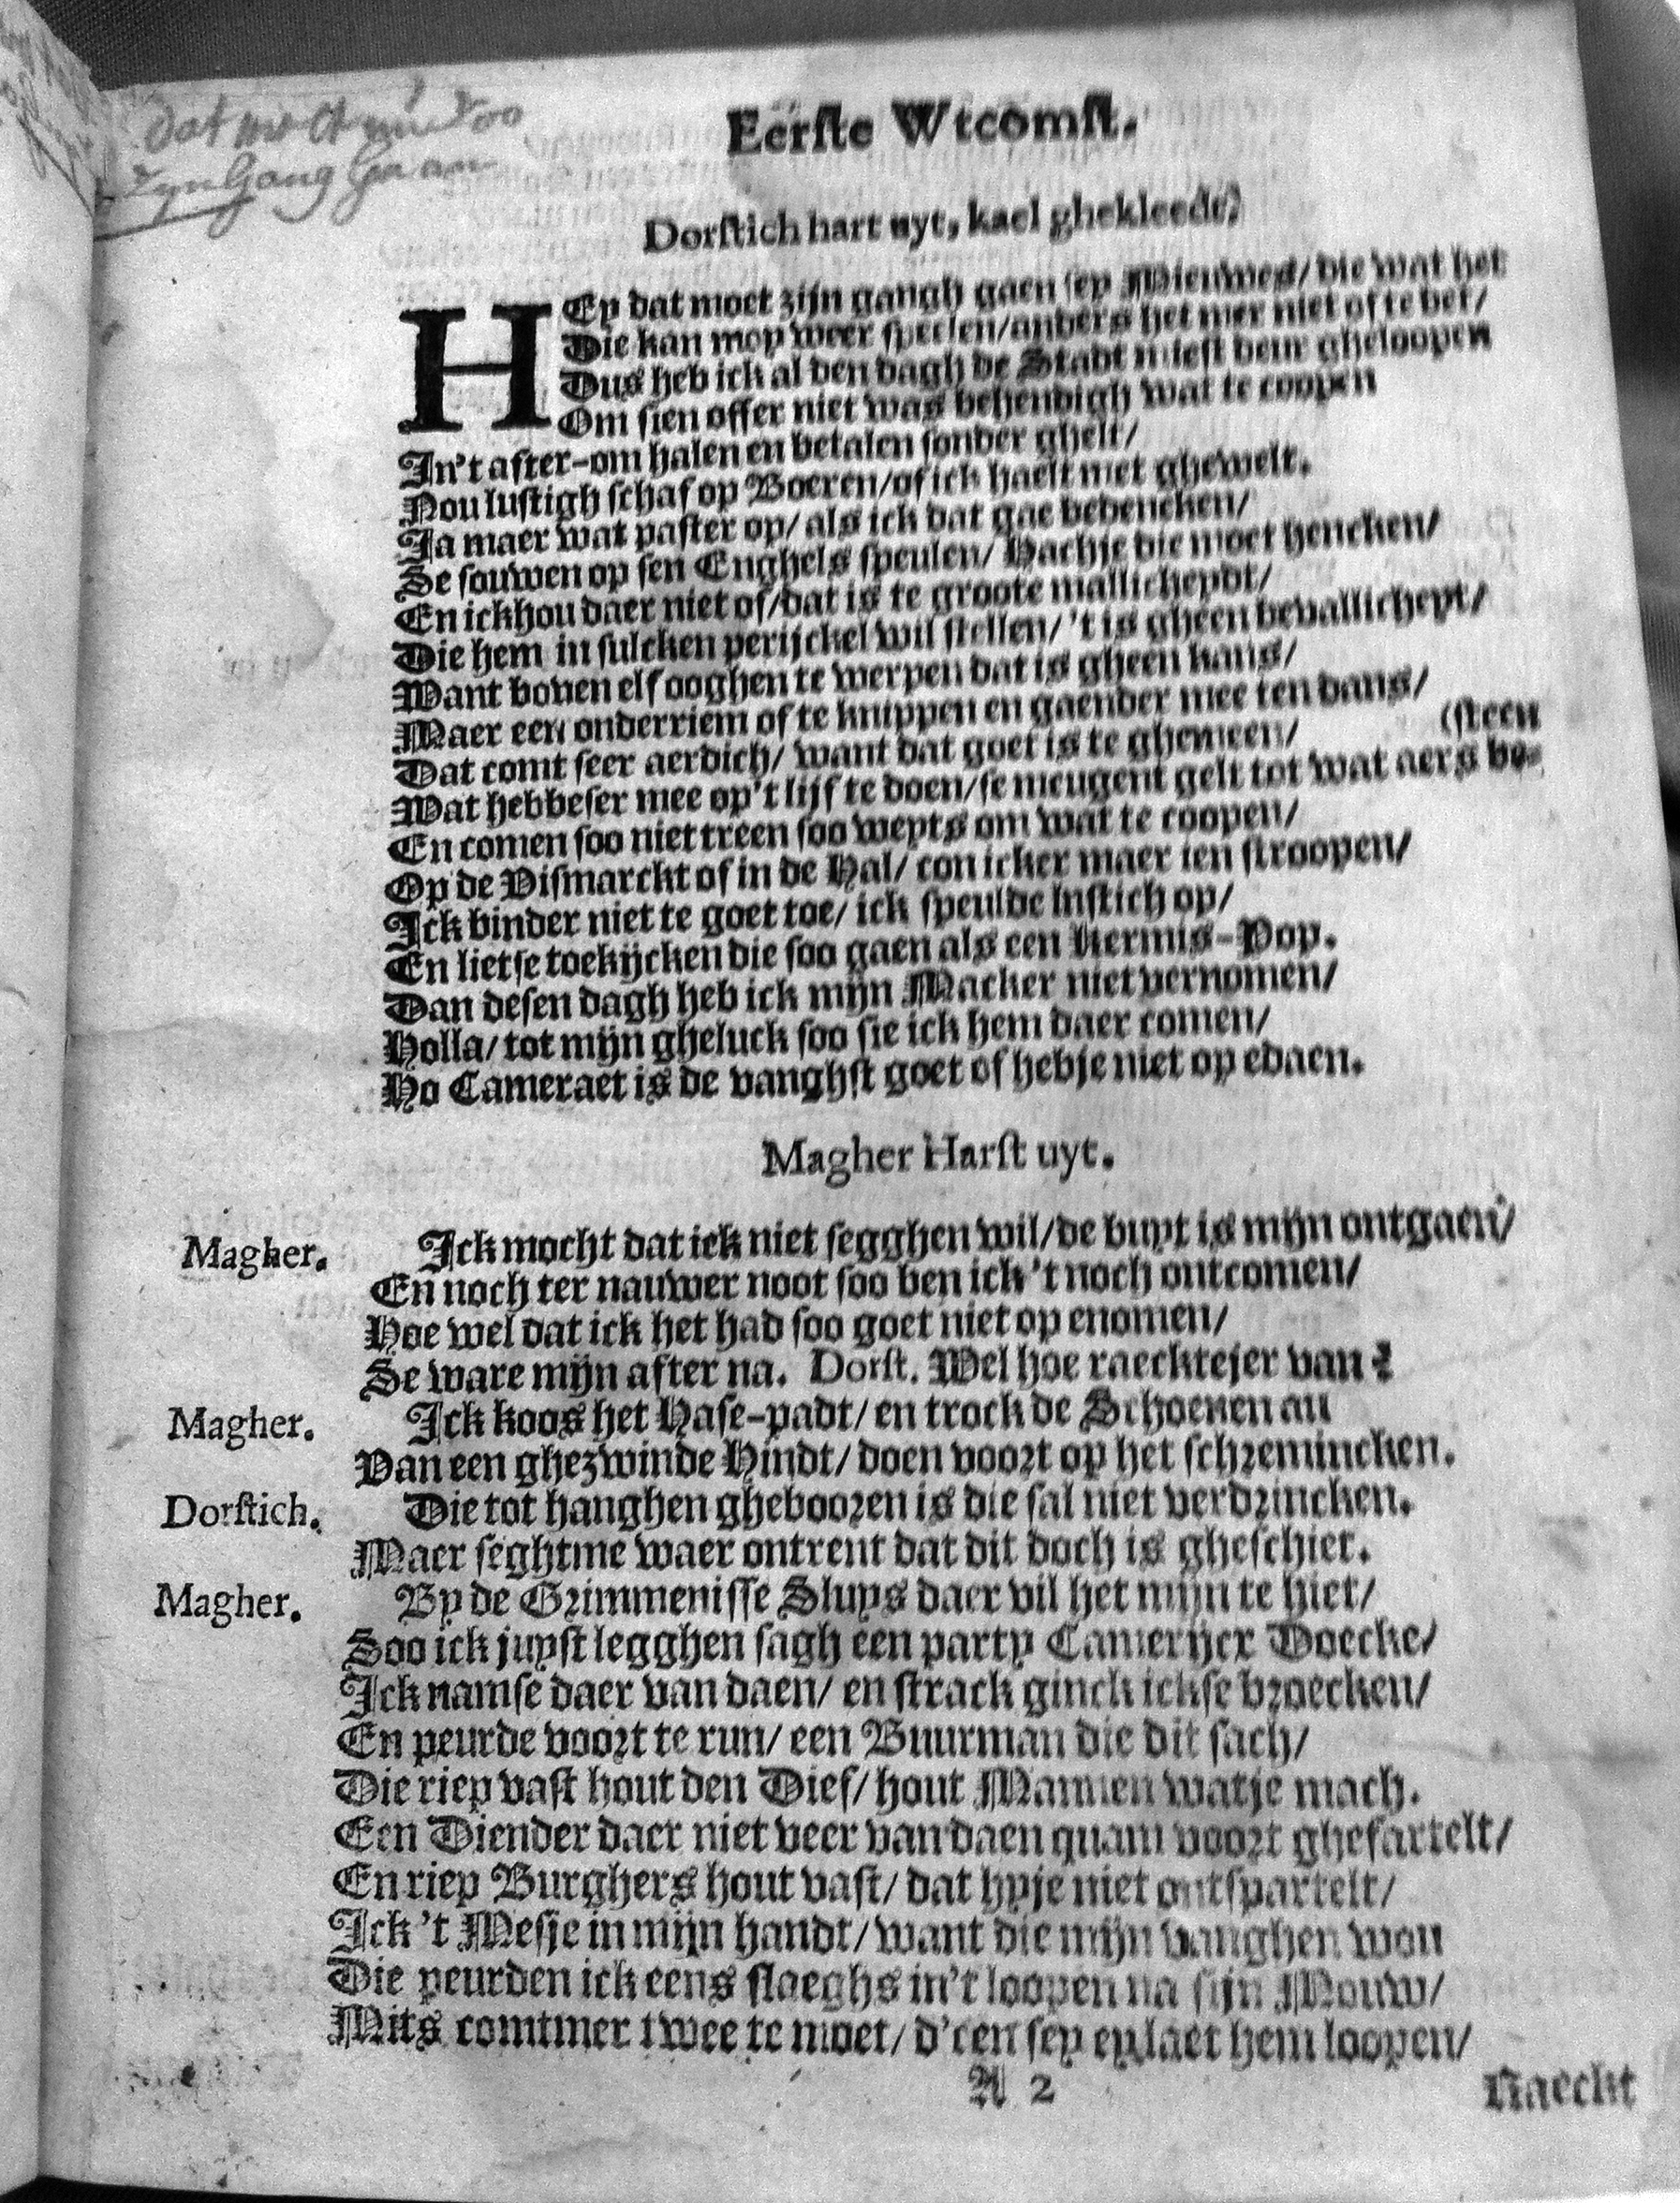 dat moet zyn Gang Gaan
Eerste Wtcomst.
Dorstich hart uyt, kael ghekleedt,
HEy dat moet zijn gangh gaen sey Meeuwes/ die wat het
Die kan moy weer speelen/anders het mer niet of te bet/
Dus heb ick al den dagh de Stadt miest deur gheloopen
Om sien offer niet was behendigh wat te coopen
In't after-om halen en betalen sonder ghelt/
Nou lustigh schaf op Boeren/of ick haelt met ghewelt.
Ja maer wat paster op/ als ick dat gae bedencken/
Se souwen op sen Enghels speulen/ Hachje die moet hencken/
En ickhou daer niet of/dat is te groote mallicheydt/
Die hem in sulcken perijckel wil stellen/ 't is gheen bevallicheyt/
Want boven elf ooghen te werpen dat is gheen kans/
Maer een onderriem of te knippen en gaender mee ten dans/
Dat comt seer aerdich/ want dat goet is te ghemeen/
(steen
Wat hebbeser mee op't lijf te doen/se meugent gelt tot wat aers be-
En comen soo niet treen soo weyts om wat te coopen/
Op de Vismarckt of in de Hal/ con icker maer ien stroopen/
Ick binder niet te goet toe/ ick speulde lustich op/
En lietse toekijcken die soo gaen als een Kermis-Pop.
Dan desen dagh heb ick mijn Macker niet vernomen/
Holla/ tot mijn gheluck soo sie ick hem daer comen/
Ho Cameraet is de vanghst goet of hebje niet op edaen.
Magher Harst uyt.
Magher. Ick mocht dat ick niet segghen wil/de buyt is mijn ontgaen/
En noch ter nauwer noot soo ben ick 't noch ontcomen/
Hoe wel dat ick het had soo goet niet op enomen/
Se ware mijn after na. Dorst. Wel hoe raecktejer van?
Magher. Ick koos het Hase-padt/ en trock de Schoenen an
Van een ghezwinde Hindt/ doen voort op het schremincken.
Dorstich. Die tot hanghen ghebooren is die sal niet verdrincken.
Maer seghtme waer ontrent dat dit doch is gheschiet.
Magher. By de Grimmenisse Sluys daer vil het mijn te hiet/
Soo ick juyst legghen sagh een party Camerijcx Doecke/
Ick namse daer van daen/ en strack ginck ickse broecken/
En peurde voort te run/ een Buurman die dit sach/
Die riep vast hout den Dief/ hout Mannen watje mach.
Een Diender daer niet veer van daen quam voort ghesartelt/
En riep Burghers hout vast/ dat hyje niet ontspartelt/
Ick 't Mesje in mijn handt/ want die mijn vanghen wou
Die peurden ick eens slaeghs in't loopen na sijn Mouw/
Mits comtmer twee te moet/ d'een sey ey laet hem loopen/
A 2
Naeckt